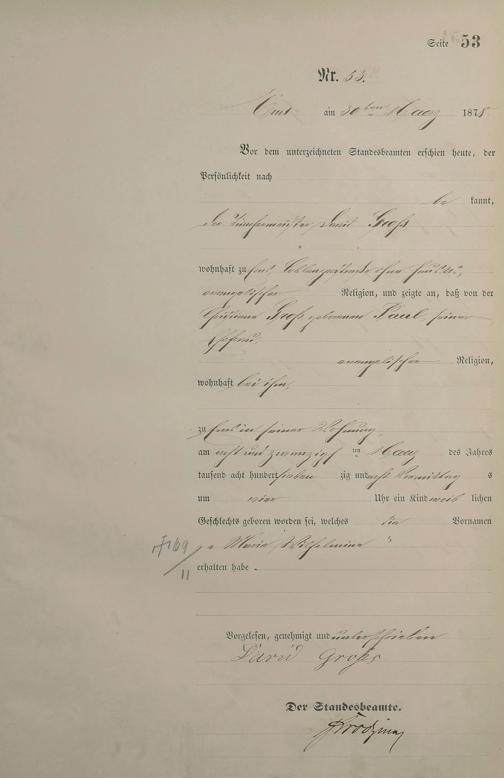 Seite 53
Nr. 53.
Ems am 30ten März 1878
Vor dem unterzeichneten Standesbeamten erschien heute, der
Persönlichkeit nach
be kannt,
der David Groß
wohnhaft zu Ems, Coblenzerstraße ohne
evangelischer Religion, und zeigte an, daß von der
Groß geborenen Paul, seiner
Ehefrau,
evangelischer Religion,
wohnhaft bei ihm,
zu Ems in seiner Wohnung,
am acht und zwanzigsten März des Jahres
tausend acht hundert sieben zig und acht Vormittags
um vier Uhr ein Kind weib lichen
Geschlechts geboren worden sei, welches die Vornamen
" Maria Wilhelmine "
erhalten habe.
Vorgelesen, genehmigt und unterschrieben
David Groß
Der Standesbeamte.